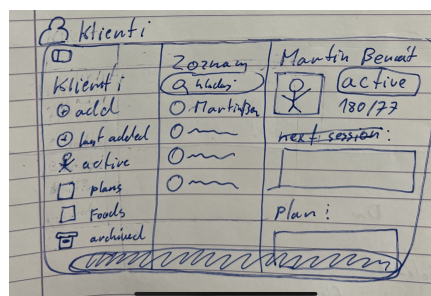 Klienti
Klienti
add
last added
active
plans
Foods
archived
Zoznam
hladaj
Martin Ben
Martin Benát
active
180/77
next session:
Plan: